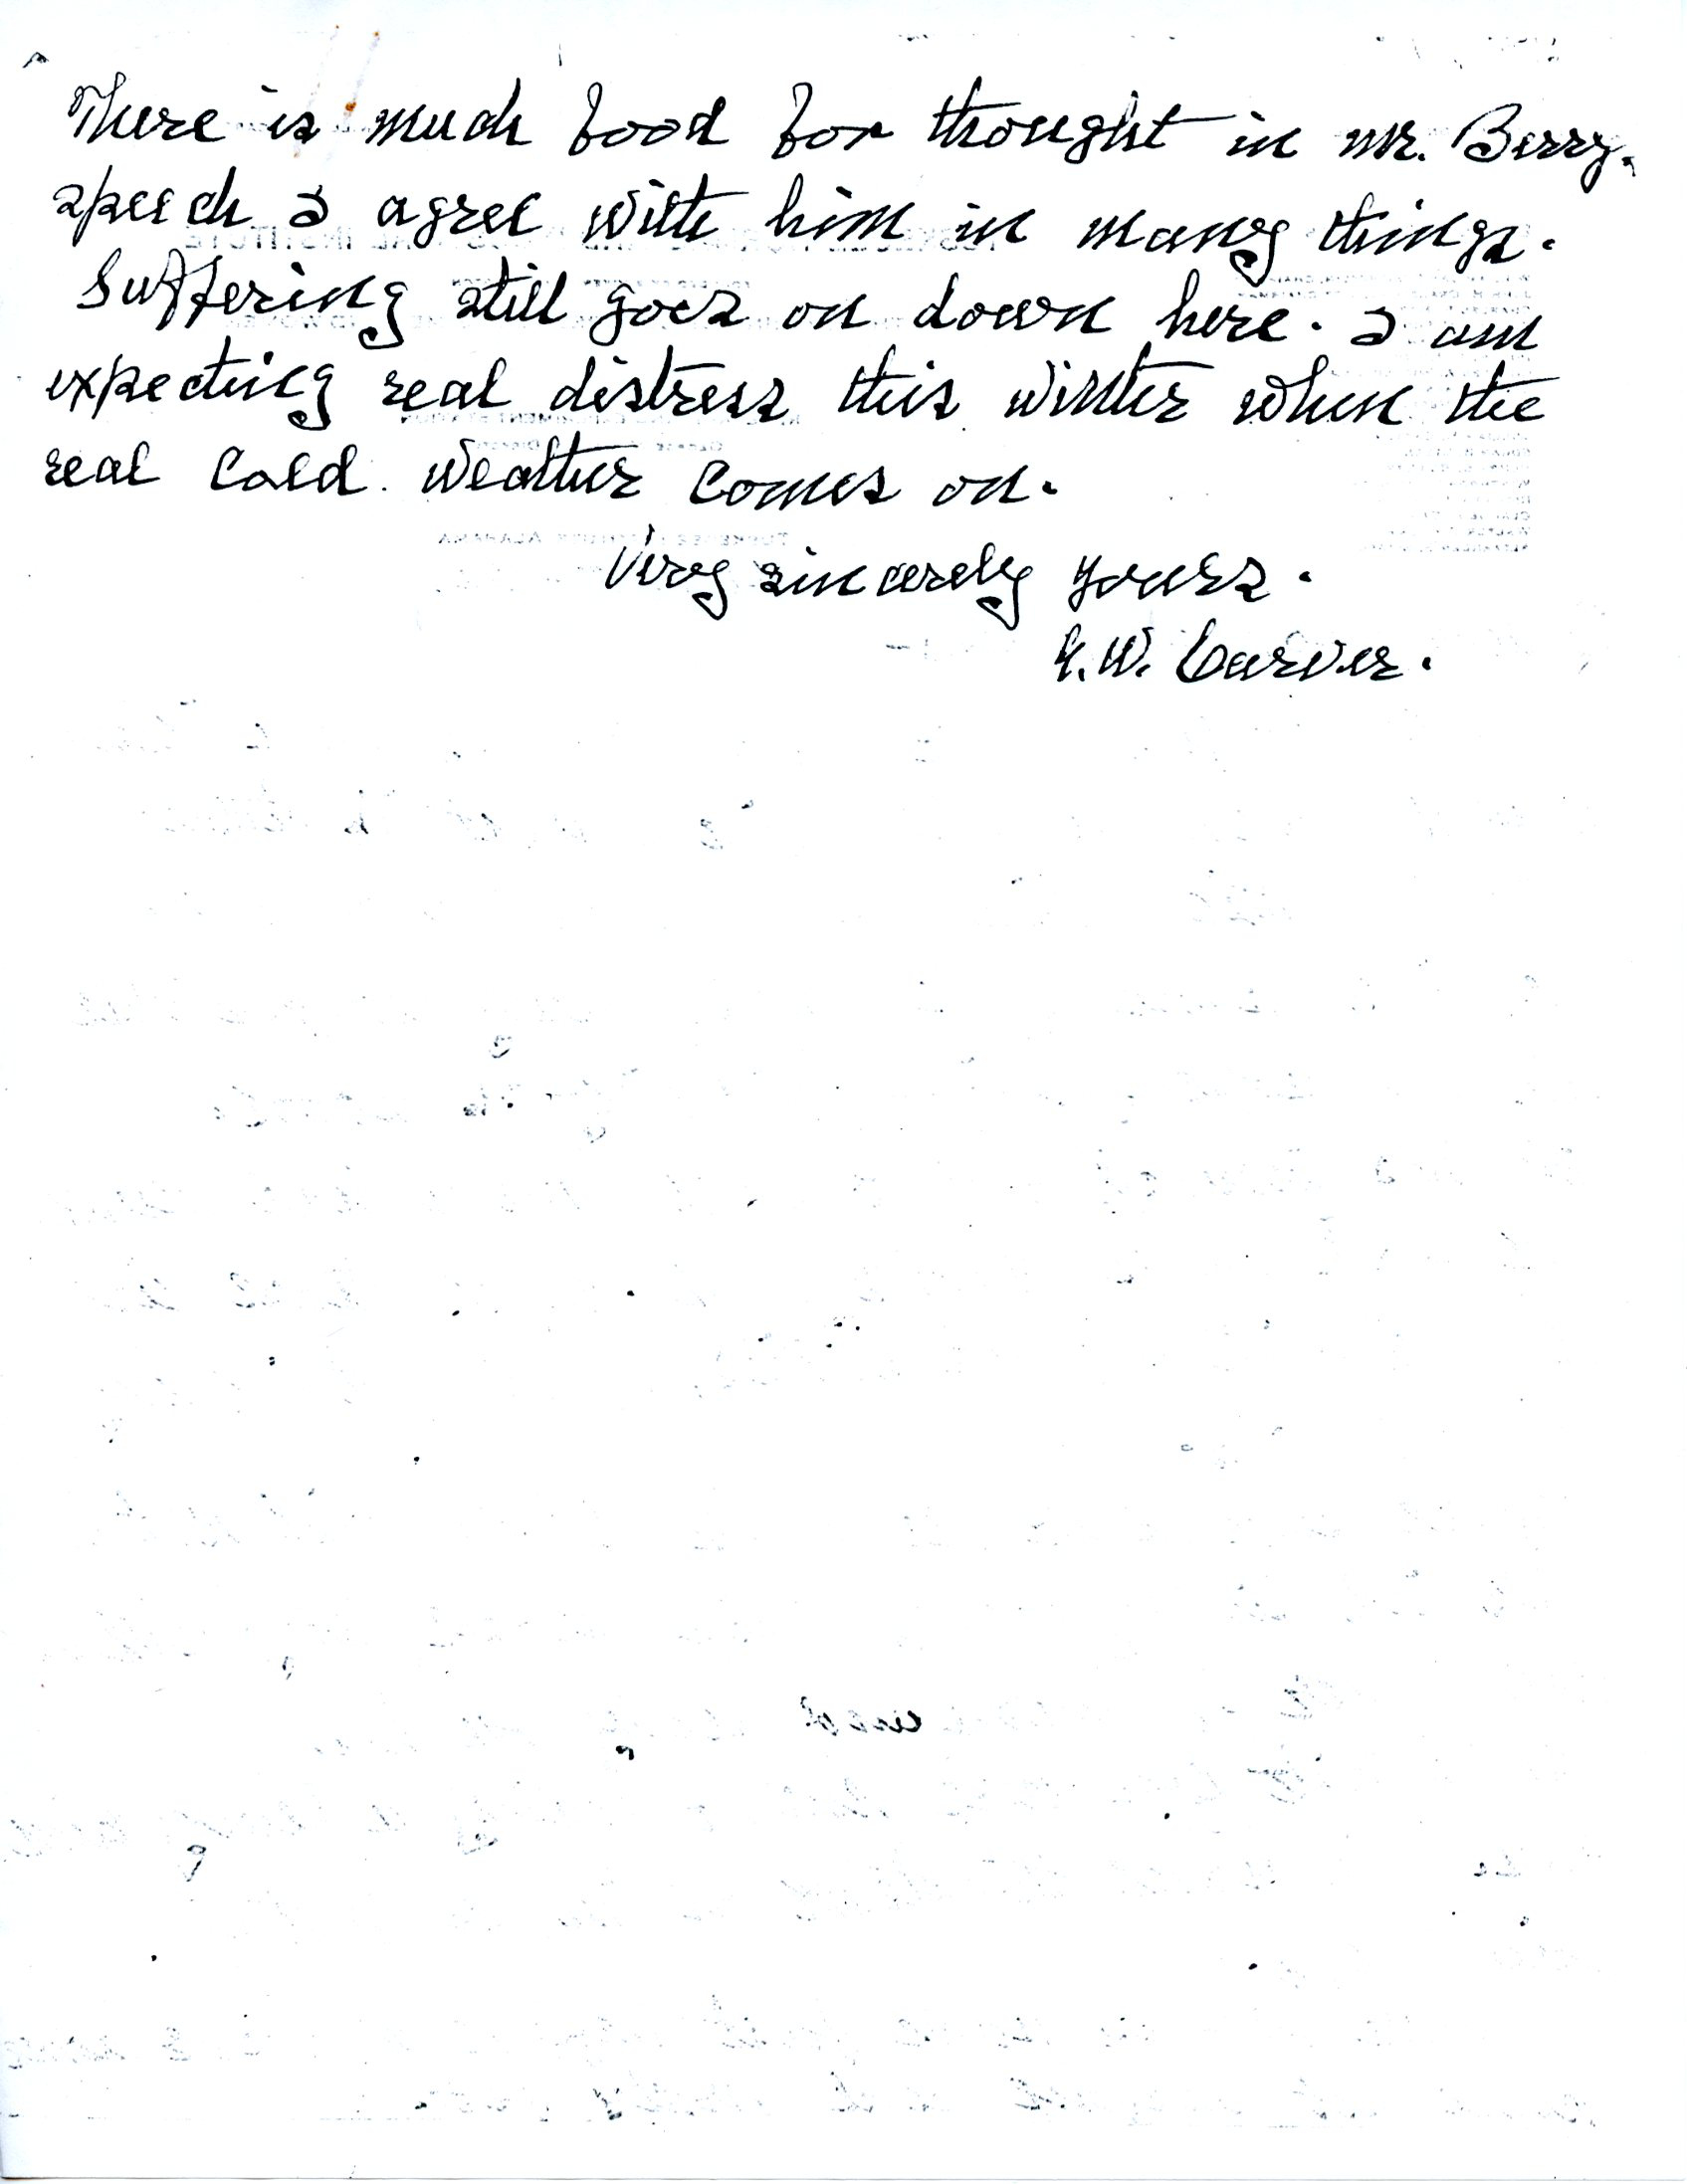 There is much food for thought in Mr. Berry.
speech I agree with him in many things.
Suffering still goes on down here. I am
expecting real distress this winter when the
real cold weather comes on.
Very sincerely yours.
G. W. Carver.